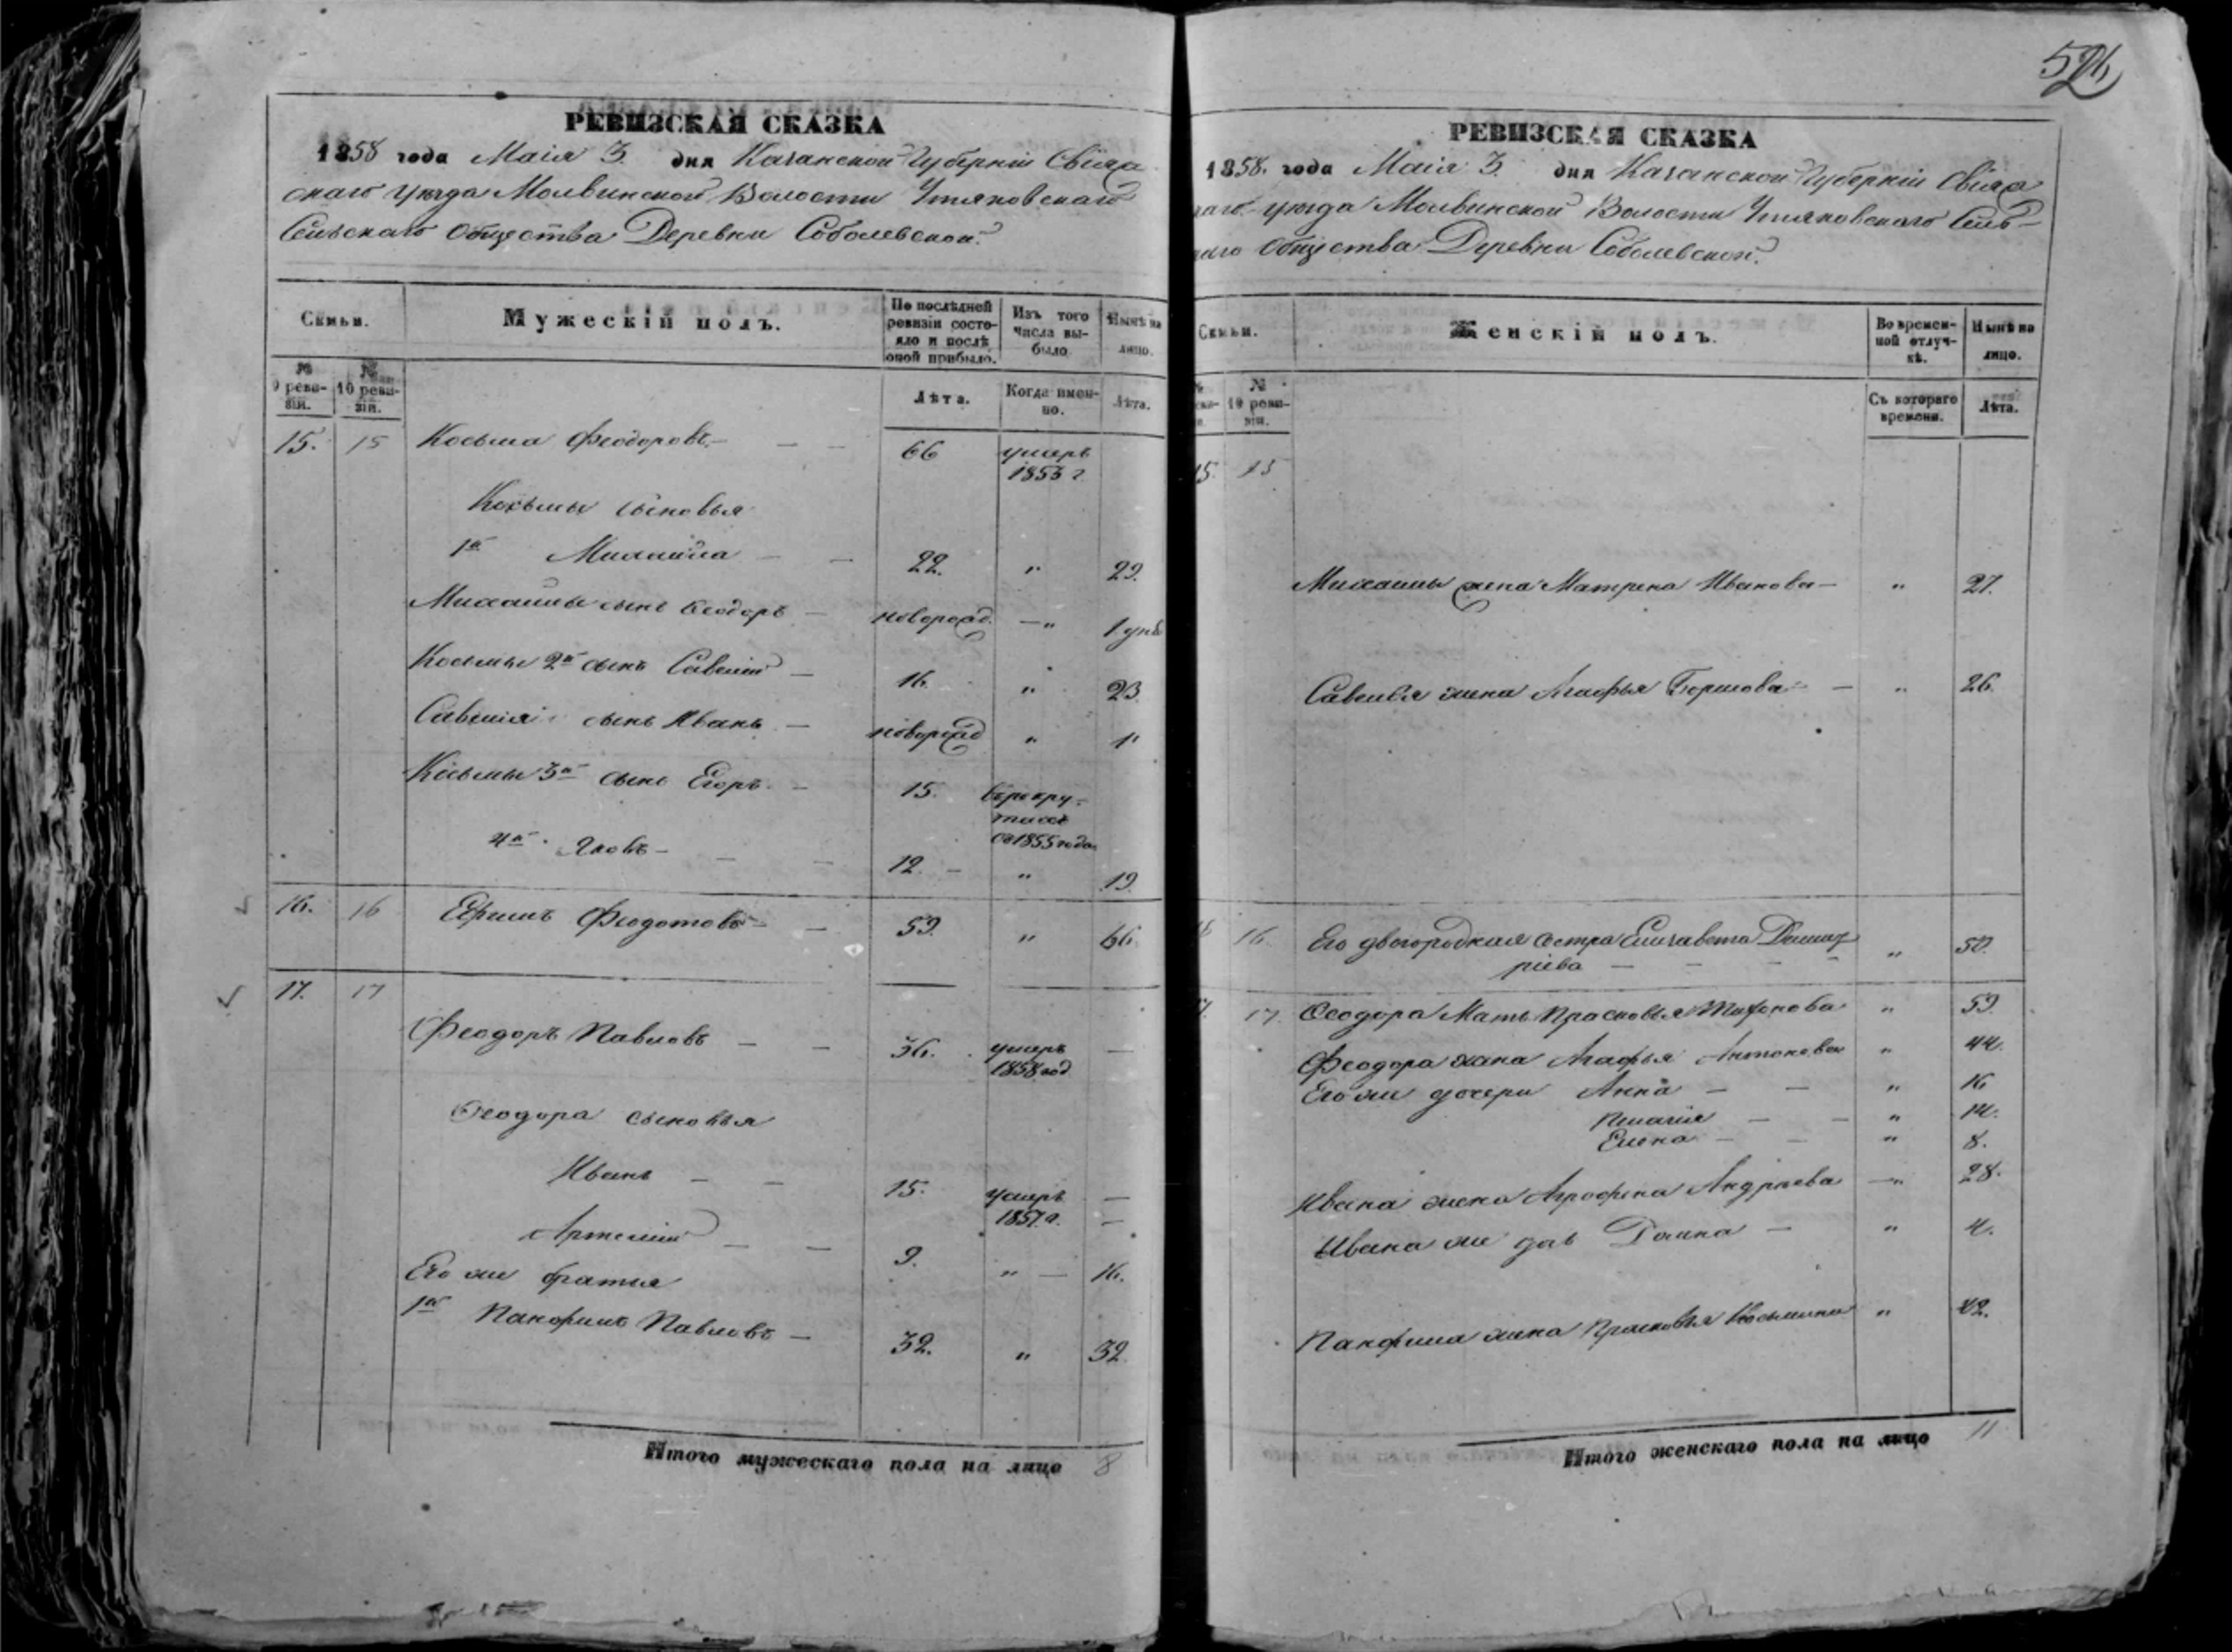 526
РЕВИЗСКАЯ СКАЗКА
1858 года Маія 3. дня Казанской Губерніи Свіяж
скаго уѣзда Молвинской Волости Утяковскаго
Сельскаго Общества Деревни Соболевской.
Семьи.
Мужескій полъ.
По послѣдней ревизіи состояло и послѣ оной прибыло.
Изъ того числа выбыло
Нынѣ на лицо.
№ 9 ревизіи.
№ 10 ревизіи.
Лѣта.
Когда именно.
Лѣта.
15. 15 Косьма Феодоровъ — — 66 умеръ
1853 г.
Козьмы сыновья
1й Михаила — — 22. " 29.
Михаилы сынъ Феодоръ — новорожд. — "
Косьмы 2й сынъ Савелій — 16. " 23.
Савелія сынъ Иванъ — новорожд " 1"
Косьмы 3й сынъ Егоръ — 15. въ рекру-
тахъ
съ 1855 года
4й Яковъ — — — 12. — " 19.
16. 16 Ефимъ Феодотовъ — — 59. " 66.
17. 17
Феодоръ Павловъ — — 36. умеръ —
1858 год
Феодора сыновья
Иванъ — — 15. умеръ —
1857. г. —
Артемій — — 9. " — 16.
Его же братья
1й Панфилъ Павловъ — 32. " 32.
Итого мужескаго пола на лицо 8
РЕВИЗСКАЯ СКАЗКА
1858. года Маія 3. дня Казанской Губерніи Свіяж
скаго уѣзда Молвинской Волости Утяковскаго Сель-
скаго Общества Деревни Соболевской.
Семьи.
Женскій полъ.
Во временной отлучкѣ.
Нынѣ на лицо.
№ 10 ревизіи.
Съ котораго времени.
Лѣта.
15. 15
Михаилы жена Матрена Иванова — " 27.
Савелья жена Агафья — " 26.
16. Его двоюродная сестра Елизавета Димит
ріева — — — — " 50.
17. Феодора Мать Прасковья Тифонова " 59.
Феодора жена Агафья Антонова " 44.
Его же дочери Анна — — " 16
Пелагія — — " 14.
Елена — — " 8.
Ивана жена Агрофена Андреева — " 28.
Ивана же дочь Домна — " 4.
Панфила жена Прасковья Косьмина " 42.
Итого женскаго пола на лицо 11